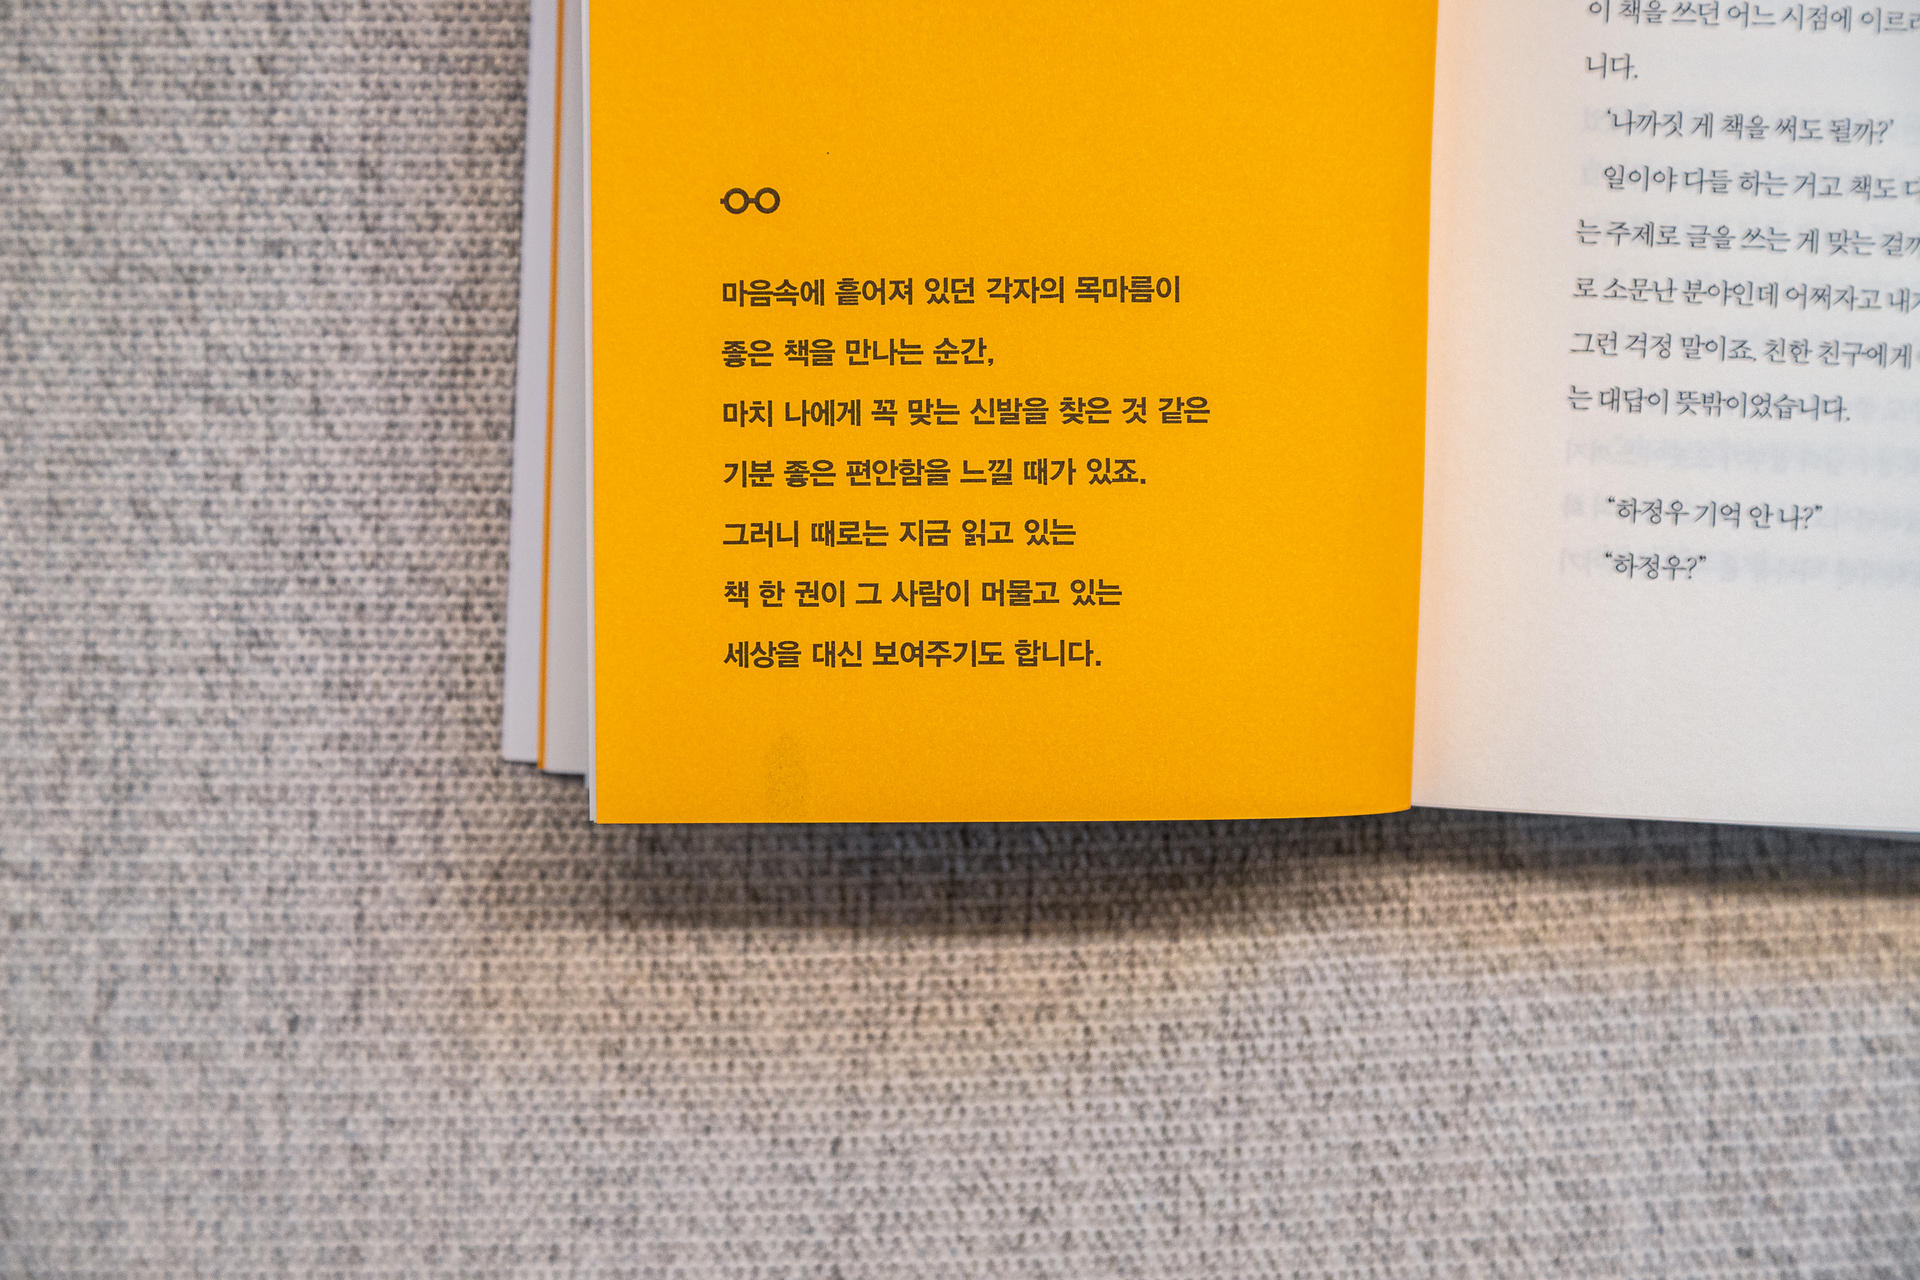 마음속에 흩어져 있던 각자의 목마름이
좋은 책을 만나는 순간,
마치 나에게 꼭 맞는 신발을 찾은 것 같은
기분 좋은 편안함을 느낄 때가 있죠.
그러니 때로는 지금 읽고 있는
책 한 권이 그 사람이 머물고 있는
세상을 대신 보여주기도 합니다.
이 책을 쓰던 어느 시점에
니다.
‘나까짓 게 책을 써도 될까?’
일이야 다들 하는 거고 책도
는 주제로 글을 쓰는 게 맞는
로 소문난 분야인데 어쩌자고
그런 걱정 말이죠. 친한 친구에게
는 대답이 뜻밖이었습니다.
“하정우 기억 안 나?”
“하정우?”